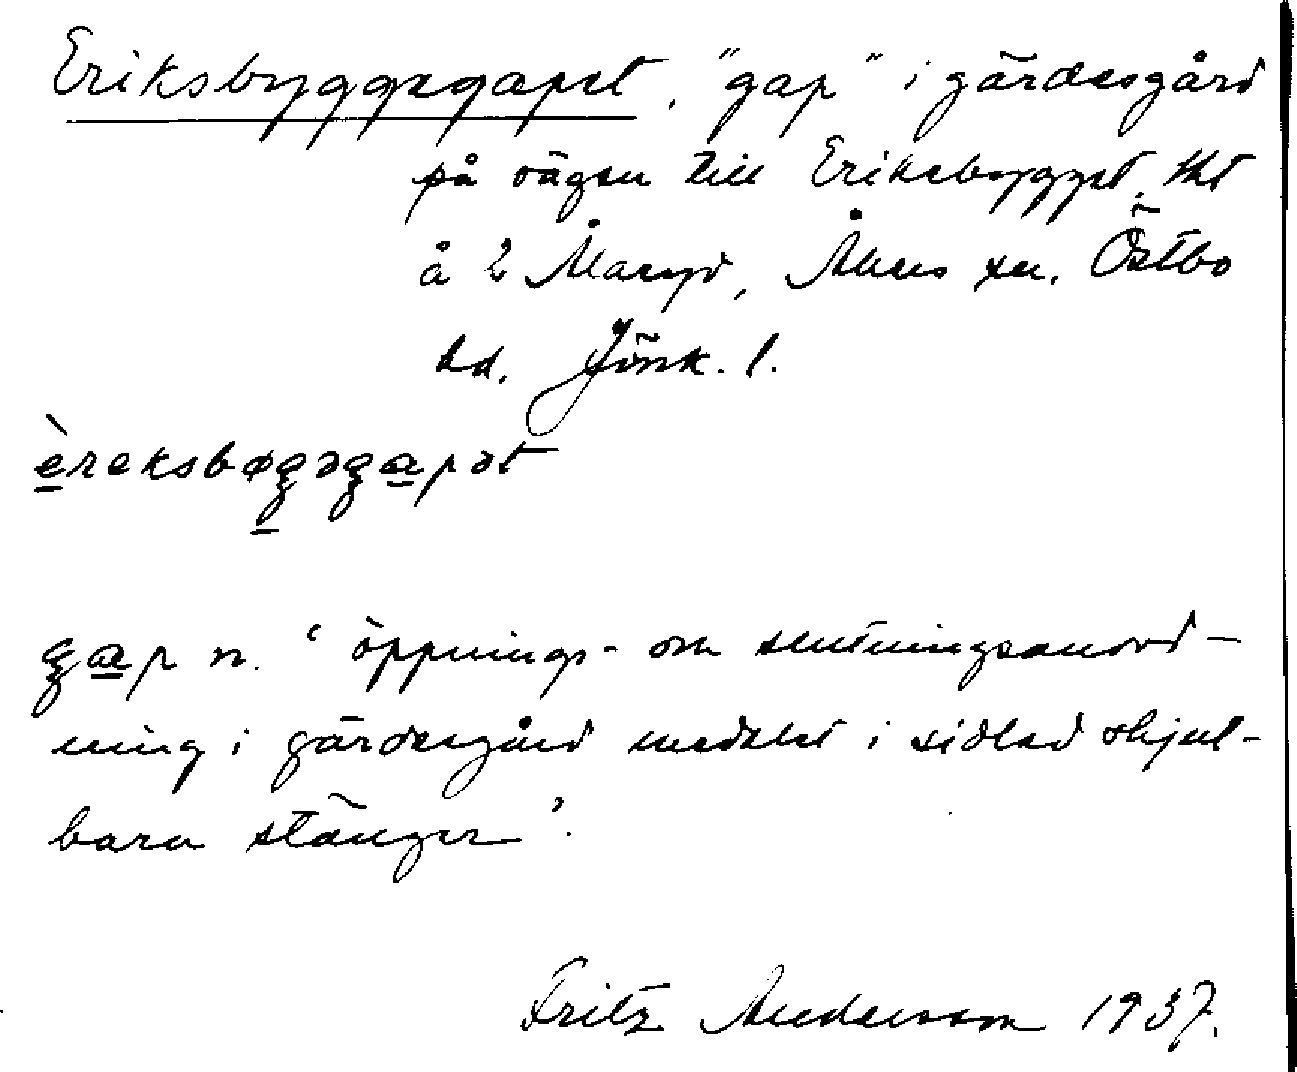 Eriksbyggegapet, "gap" i gärdesgård
på vägen till Eriksbygget, tht
å 2 Maryd, Åkers sn. Östbo
hd. Jönk. l.
èreksbøgəgapət
gap n. 'öppnings- om slutningsanord-
ning i gärdesgård medelst i sidled skjut-
bara stänger'.
Fritz Andersson 1937.